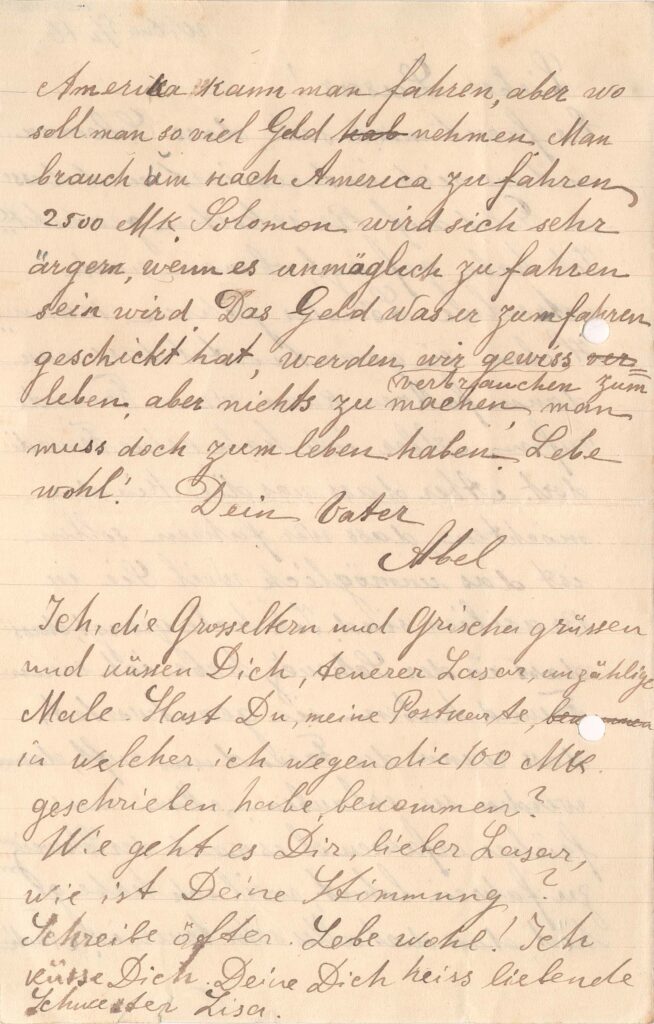 Amerika kann man fahren, aber wo
soll man so viel Geld hab nehmen. Man
brauch um nach America zu fahren
2500 Mk Solomon wird sich sehr
ärgern, wenn es unmöglich zu fahren
sein wird. Das Geld was er zum fahren
geschickt hat, werden wir gewiss ver=
verbrauchen zum=
leben, aber nichts zu machen, man
muss doch zum leben haben. Lebe
wohl! Dein Vater
Abel
Ich, die Grosseltern und Grischa grüssen
und küssen Dich, teuerer Lasar, unzählige
Male. Hast Du, meine Postkarte,
in welcher ich wegen die 100 Mk.
geschrieben habe, bekommen?
Wie geht es Dir, lieber Lasar,
wie ist Deine Stimmung?
Schreibe öfter. Lebe wohl! Ich
küsse Dich. Deine Dich heiss liebende
Schwester Lisa.